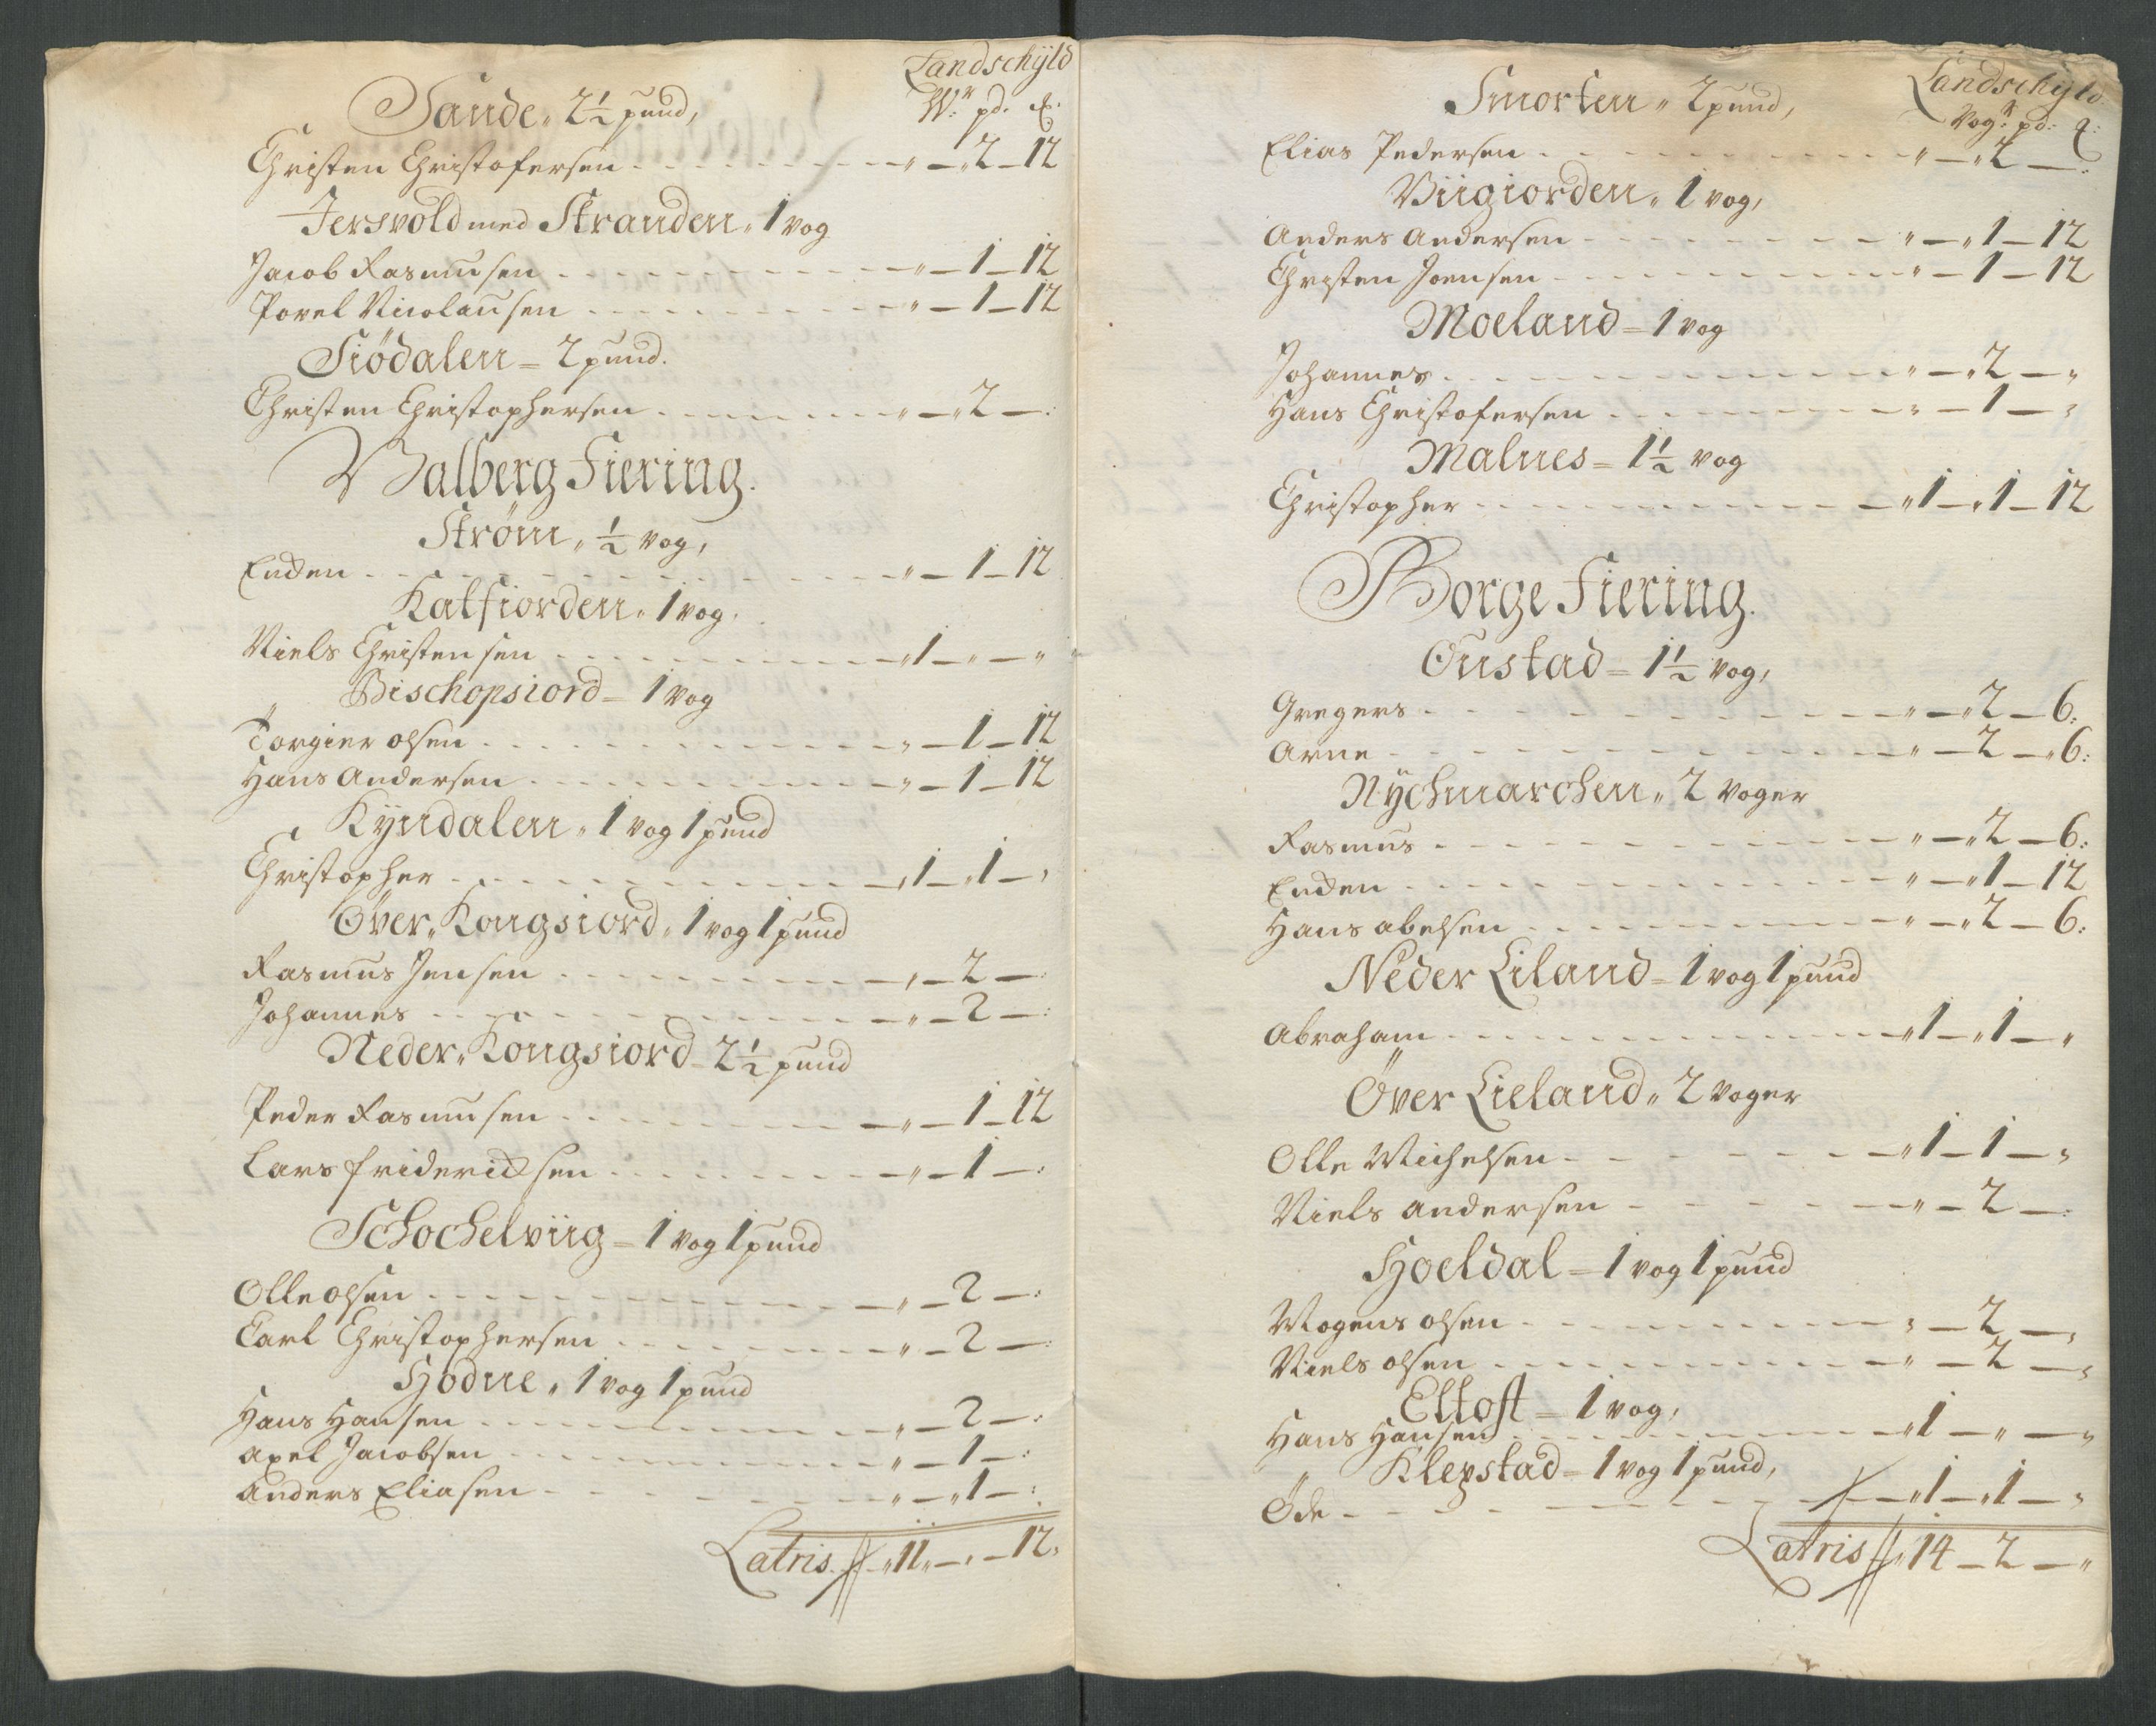 Landschÿld
Sande „ 2½ pund,
W:r pd. ℔.
Christen Christofersen - - - „ — „2 — 12
Jersvold med Stranden „ 1 vog
Jacob Rasmusen - - - „ — 1 — 12
Povel Nicolausen - - - „ — 1 — 12
Siödalen = 2 pund.
Christen Christophersen - - - „ — „2 — :
Valberg Fiering.
Strøm „ ½ vog,
Enden - - - „ — 1 — 12
Kalfiorden „ 1 vog,
Niels Christensen - - - „1 — „ — „
Bischopsiord = 1 vog
Torgier olsen - - - „ — 1 — 12
Hans Andersen - - - „ — 1 — 12
Kÿndalen „ 1 vog 1 pund
Christopher - - - „1 — „1 — ,
Över „ Kongsiord „ 1 vog 1 pund
Rasmus Jensen - - - „ — 2 — :
Johannes - - - „ — 2 — :
Neder „ Kongsiord = 2½ pund
Peder Rasmusen - - - „ — 1 — 12
Lars fridericksen - - - „ — 1 — :
Schochelviig = 1 vog 1 pund
Olle olsen - - - „ — 2 — :
Carl Christophersen - - - „ — 2 — :
Hodne „ 1 vog 1 pund
Hans Hansen - - - „ — 2 — :
Axel Jacobsen - - - „ — 1 — :
Anders Eliasen - - - „ — „1 — :
Latris „ 11 „ — „ — 12 „
Landschÿld
Smorten „ 2 pund,
Vog:r pd: ℔:
Elias Pedersen - - - „ — „2 — :
Viigiorden „ 1 vog,
Anders Andersen - - - „ — „1 — 12
Christen Joensen - - - „ — 1 — 12
Moeland = 1 vog
Johannes - - - „ — „2 — „
Hans Christofersen - - - „ — 1 — „
Malnes = 1½ vog
Christopher - - - „1 — „1 — 12
Borge Fiering.
Oustad = 1½ vog,
Gregers - - - „ — „2 — 6:
Arne - - - „ — 2 — „6:
Nÿchmarchen „ 2 voger
Rasmus - - - „ — „2 — 6:
Enden - - - „ — „1 — 12
Hans abelsen - - - „ — „2 — 6:
Neder Liland = 1 vog 1 pund
Abraham - - - „1 — „1 — „
Över Lieland „ 2 voger
Olle Michelsen - - - „1 — 1 — „
Niels andersen - - - „ — 2 — :
Hoeldal = 1 vog 1 pund
Mogens olsen - - - „ — 2 — „
Niels olsen - - - „ — 2 — „
Eltoft = 1 vog,
Hans Hansen - - - „1 — „ — „
Klepstad = 1 vog 1 pund,
Öde - - - „1 — „1 — „
Latris „ 14 — 2 — „